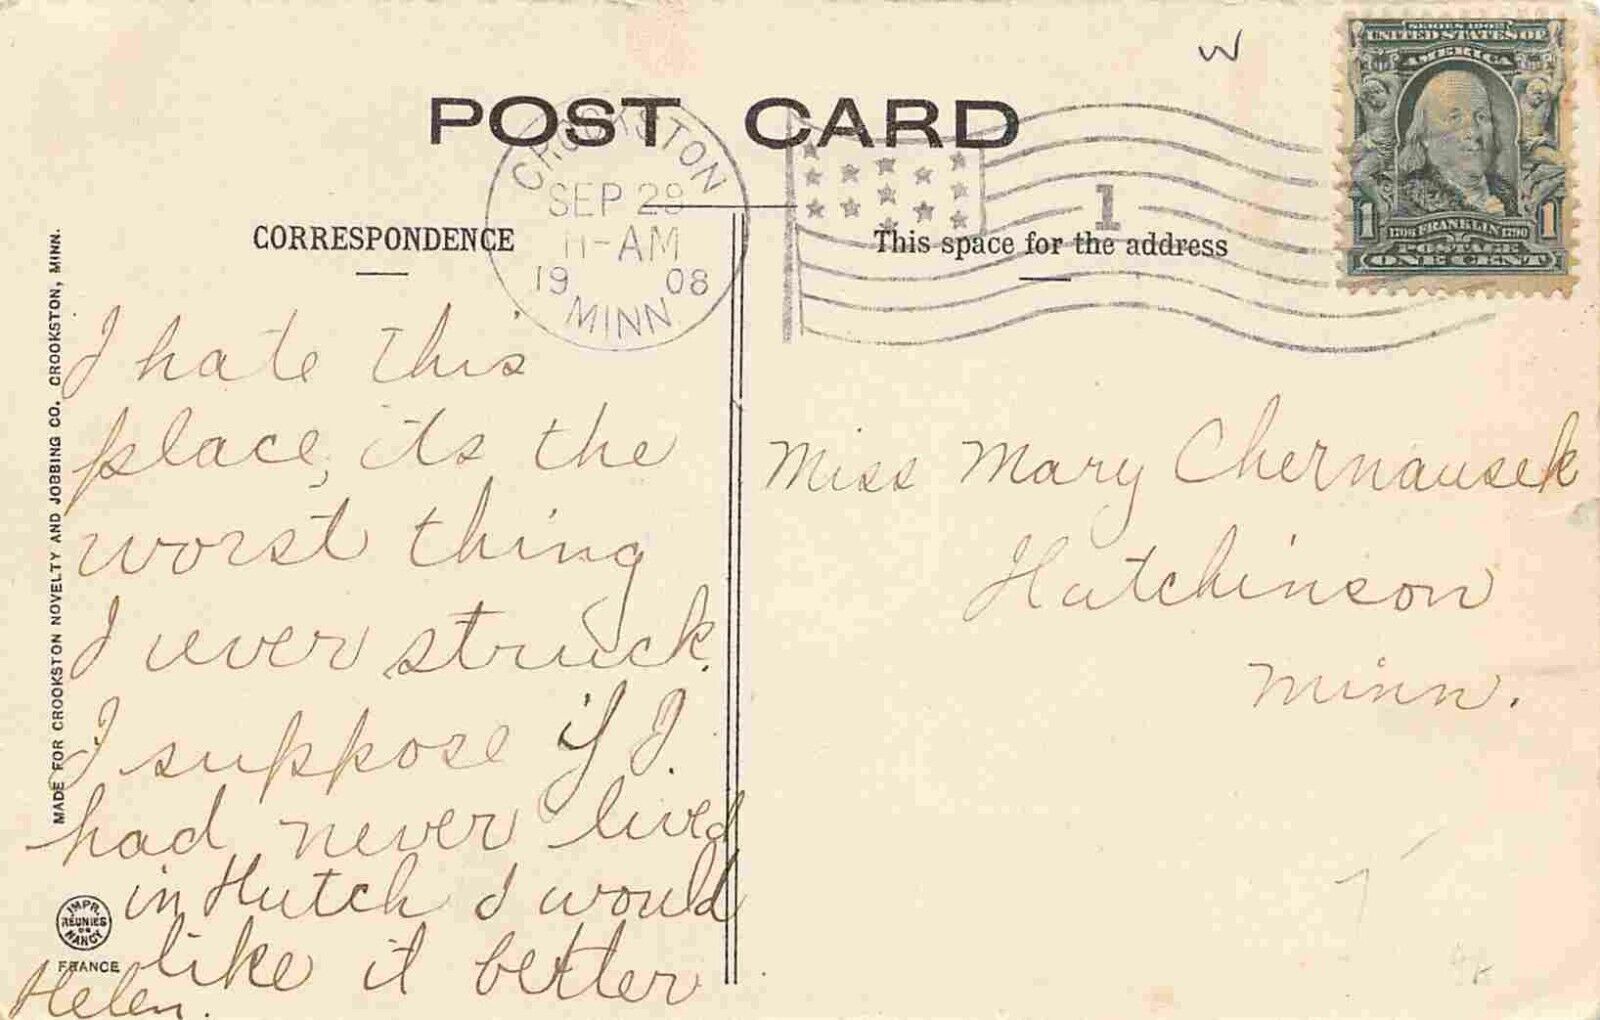 W
SERIES 1902
UNITED STATES OF
AMERICA
1 1706 FRANKLIN 1790 1
POSTAGE
ONE CENT
POST CARD
CROOKSTON
SEP 29
11-AM
19 08
MINN.
1
CORRESPONDENCE
This space for the address
I hate this
place, its the
worst thing
I ever struck.
I suppose if I
had never lived
in Hutch I would
like it better
Helen.
Miss Mary Chernausek
Hutchinson
Minn.
MADE FOR CROOKSTON NOVELTY AND JOBBING CO. CROOKSTON, MINN.
IMPR.
REUNIES
DE
NANCY
FRANCE